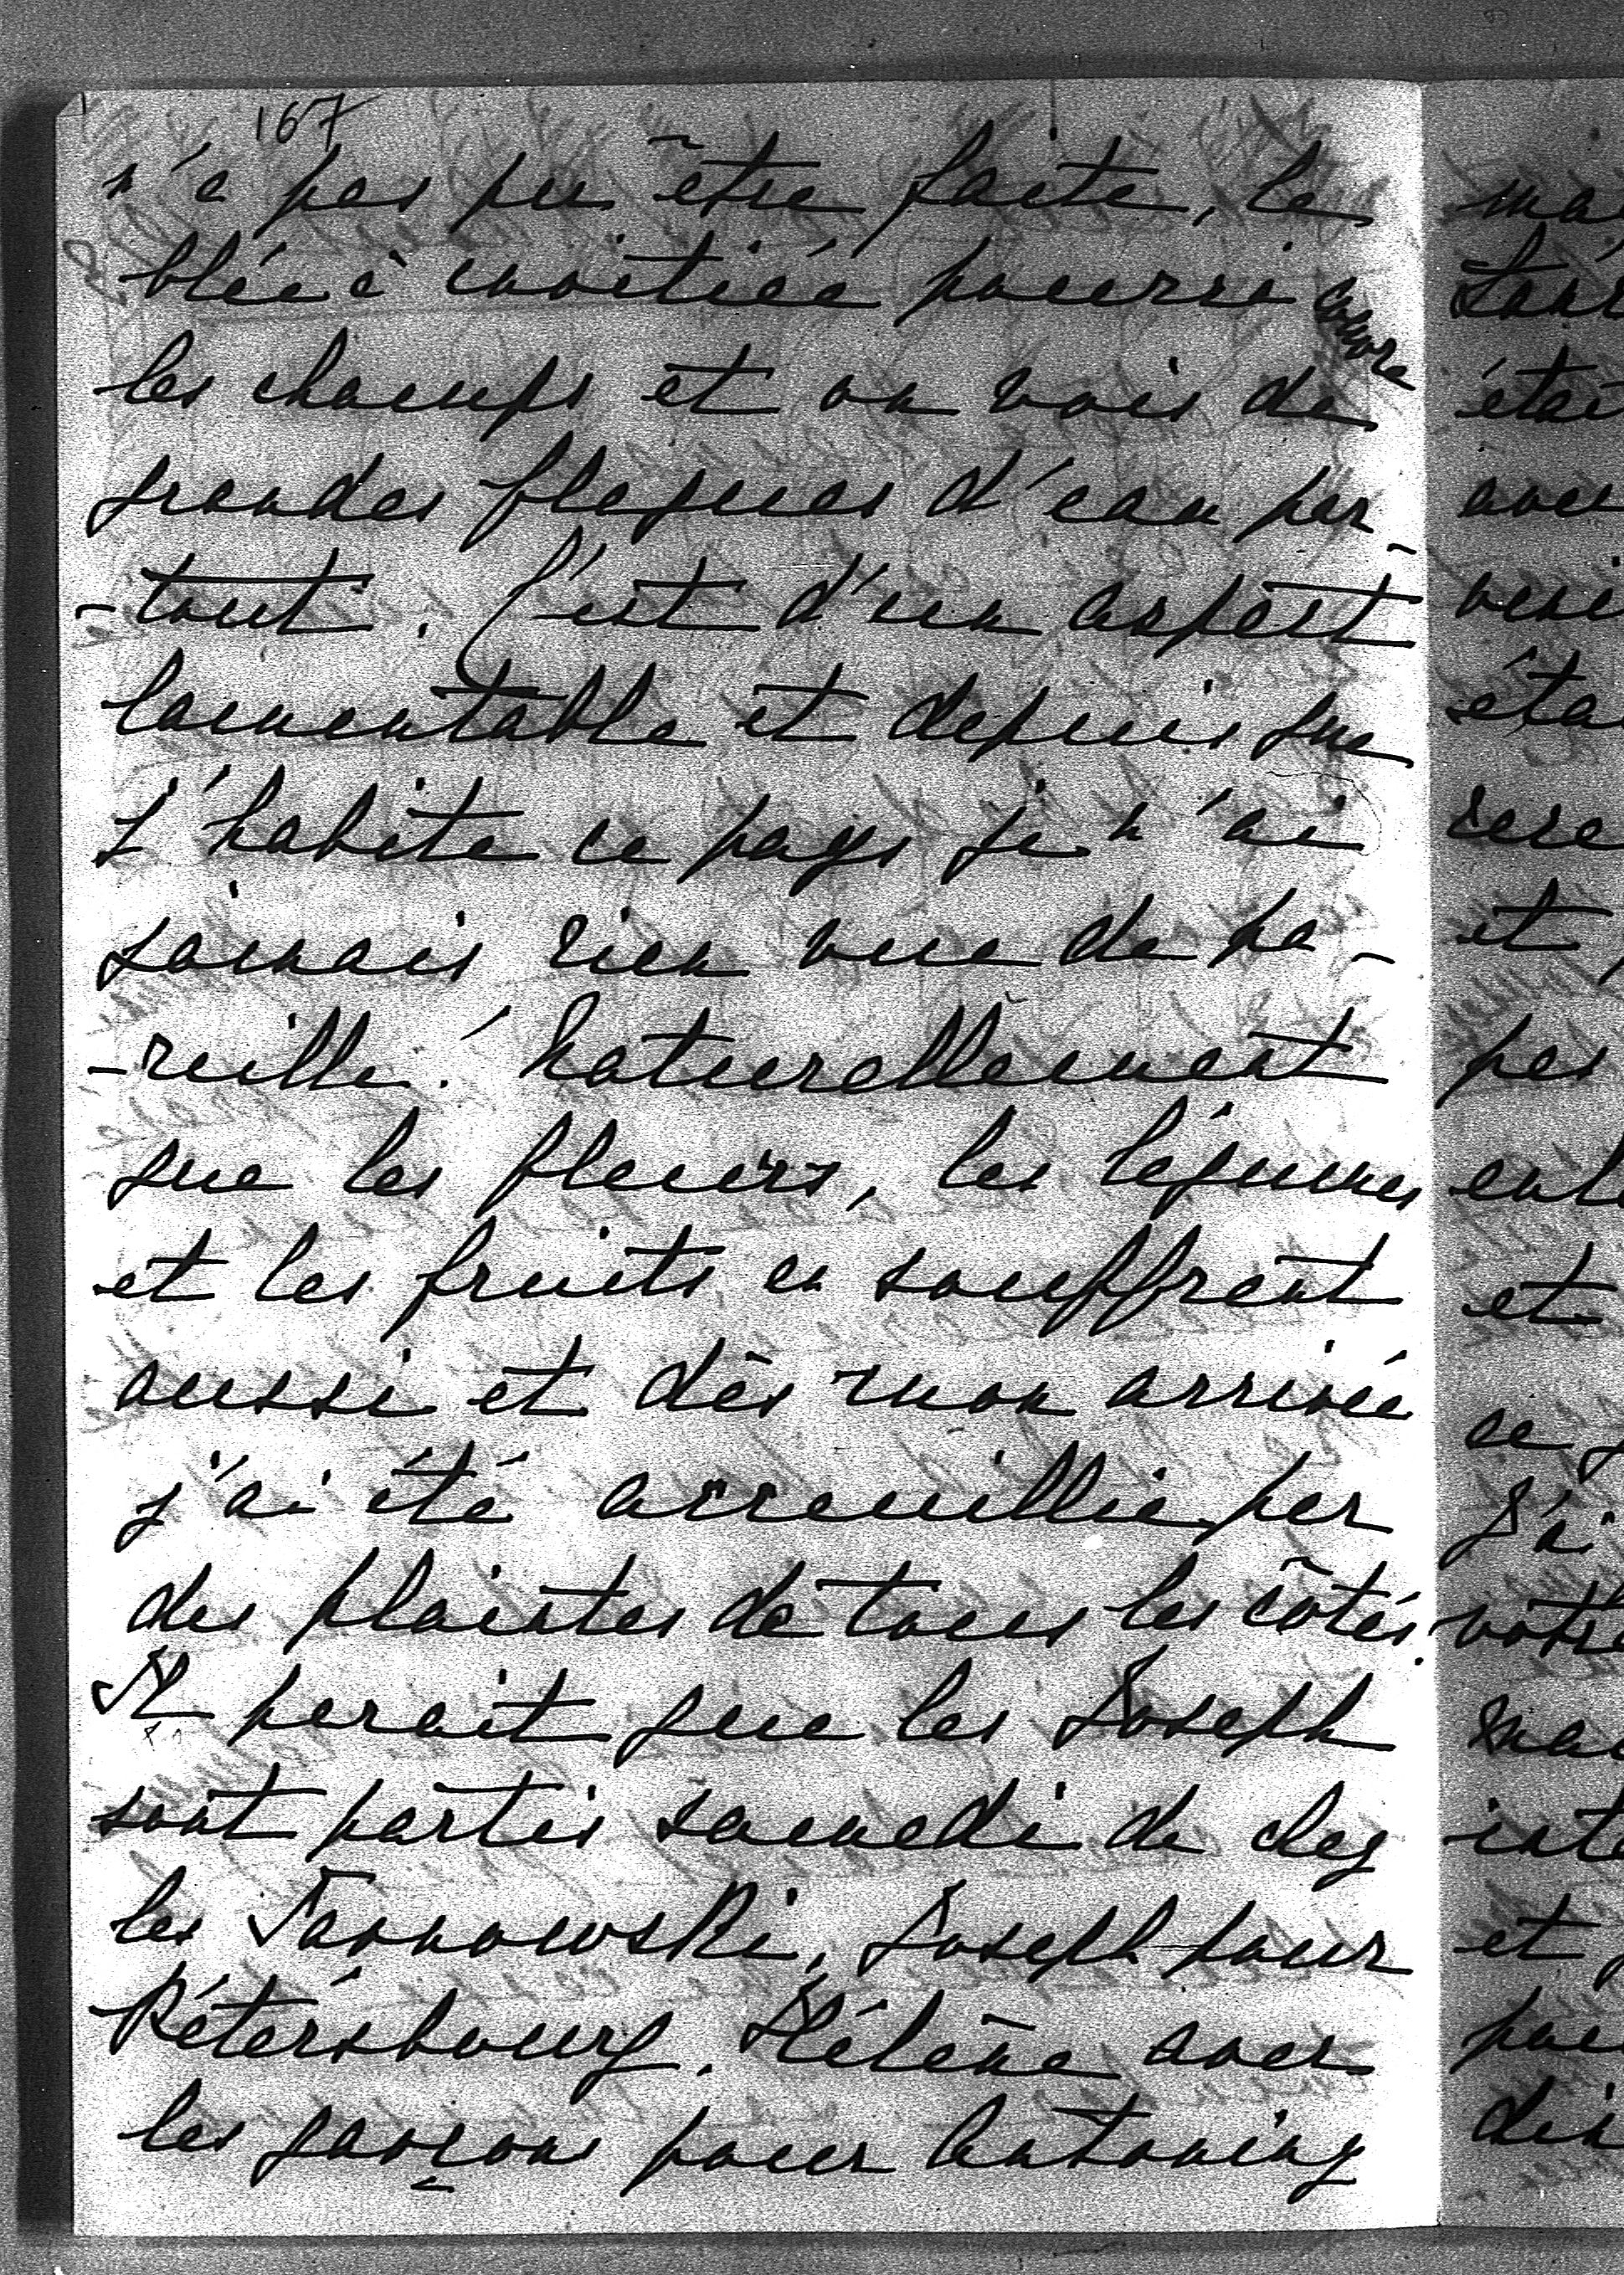 167
n'a pas pu être faite, le
blée à moitiée pourri couvre
les champs et on vois de
grandes flaques d'eau par-
-tout. C'est d'un aspect
lamentable et depuis que
j'habite ce pays je n'ai
jamais rien vue de pa-
-reille! Naturellement
que les fleurs, les légumes
et les fruits en souffrent
aussi et dès mon arrivée
j'ai été acceuillie par
des plaintes de tous les côtés.
Il parait que les Joseph
sont partis samedi de chez
les Tarnowski, Joseph pour
Pétersbourg, Hélène avec
les garçons pour Antoniny
ma
était
et
et
se
J'ai
et